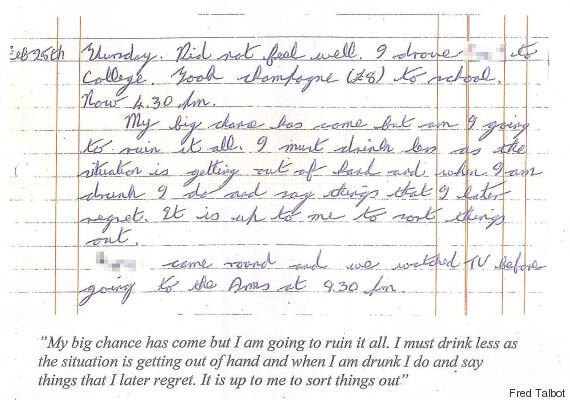 Feb 25th Thursday. Did not feel well. I drove to
College. Took champagne (£8) to school.
Now 4.30 pm.
My big chance has come but am I going
to ruin it all. I must drink less as the
situation is getting out of hand and when I am
drunk I do and say things that I later
regret. It is up to me to sort things
out.
came round and we watched TV before
going to the Arms at 9.30 pm.
"My big chance has come but I am going to ruin it all. I must drink less as
the situation is getting out of hand and when I am drunk I do and say
things that I later regret. It is up to me to sort things out"
Fred Talbot